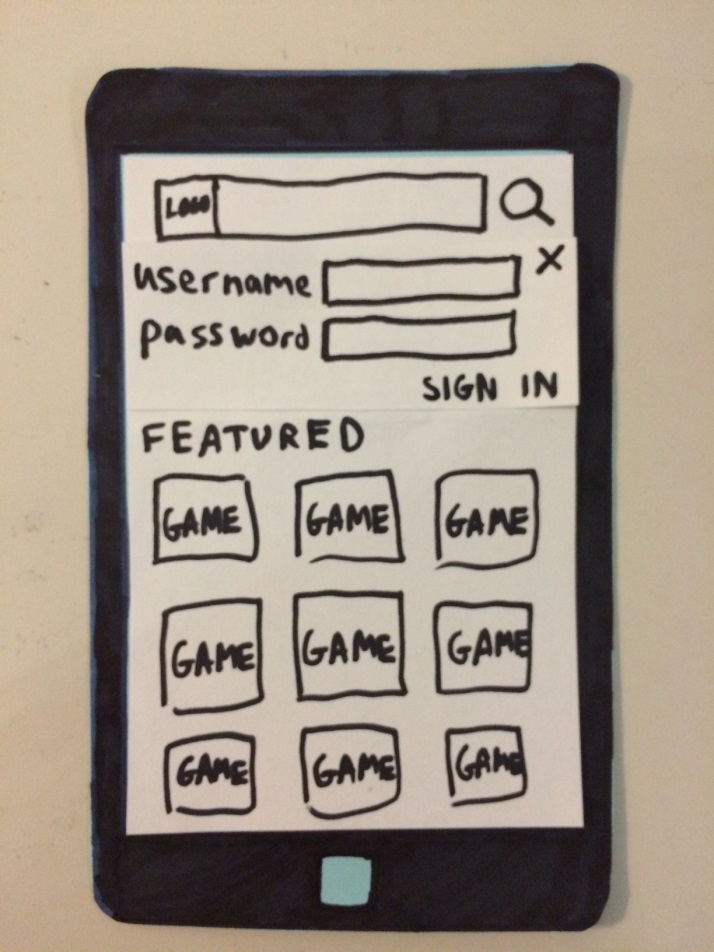 LOGO
username X
password
SIGN IN
FEATURED
GAME GAME GAME
GAME GAME GAME
GAME GAME GAME